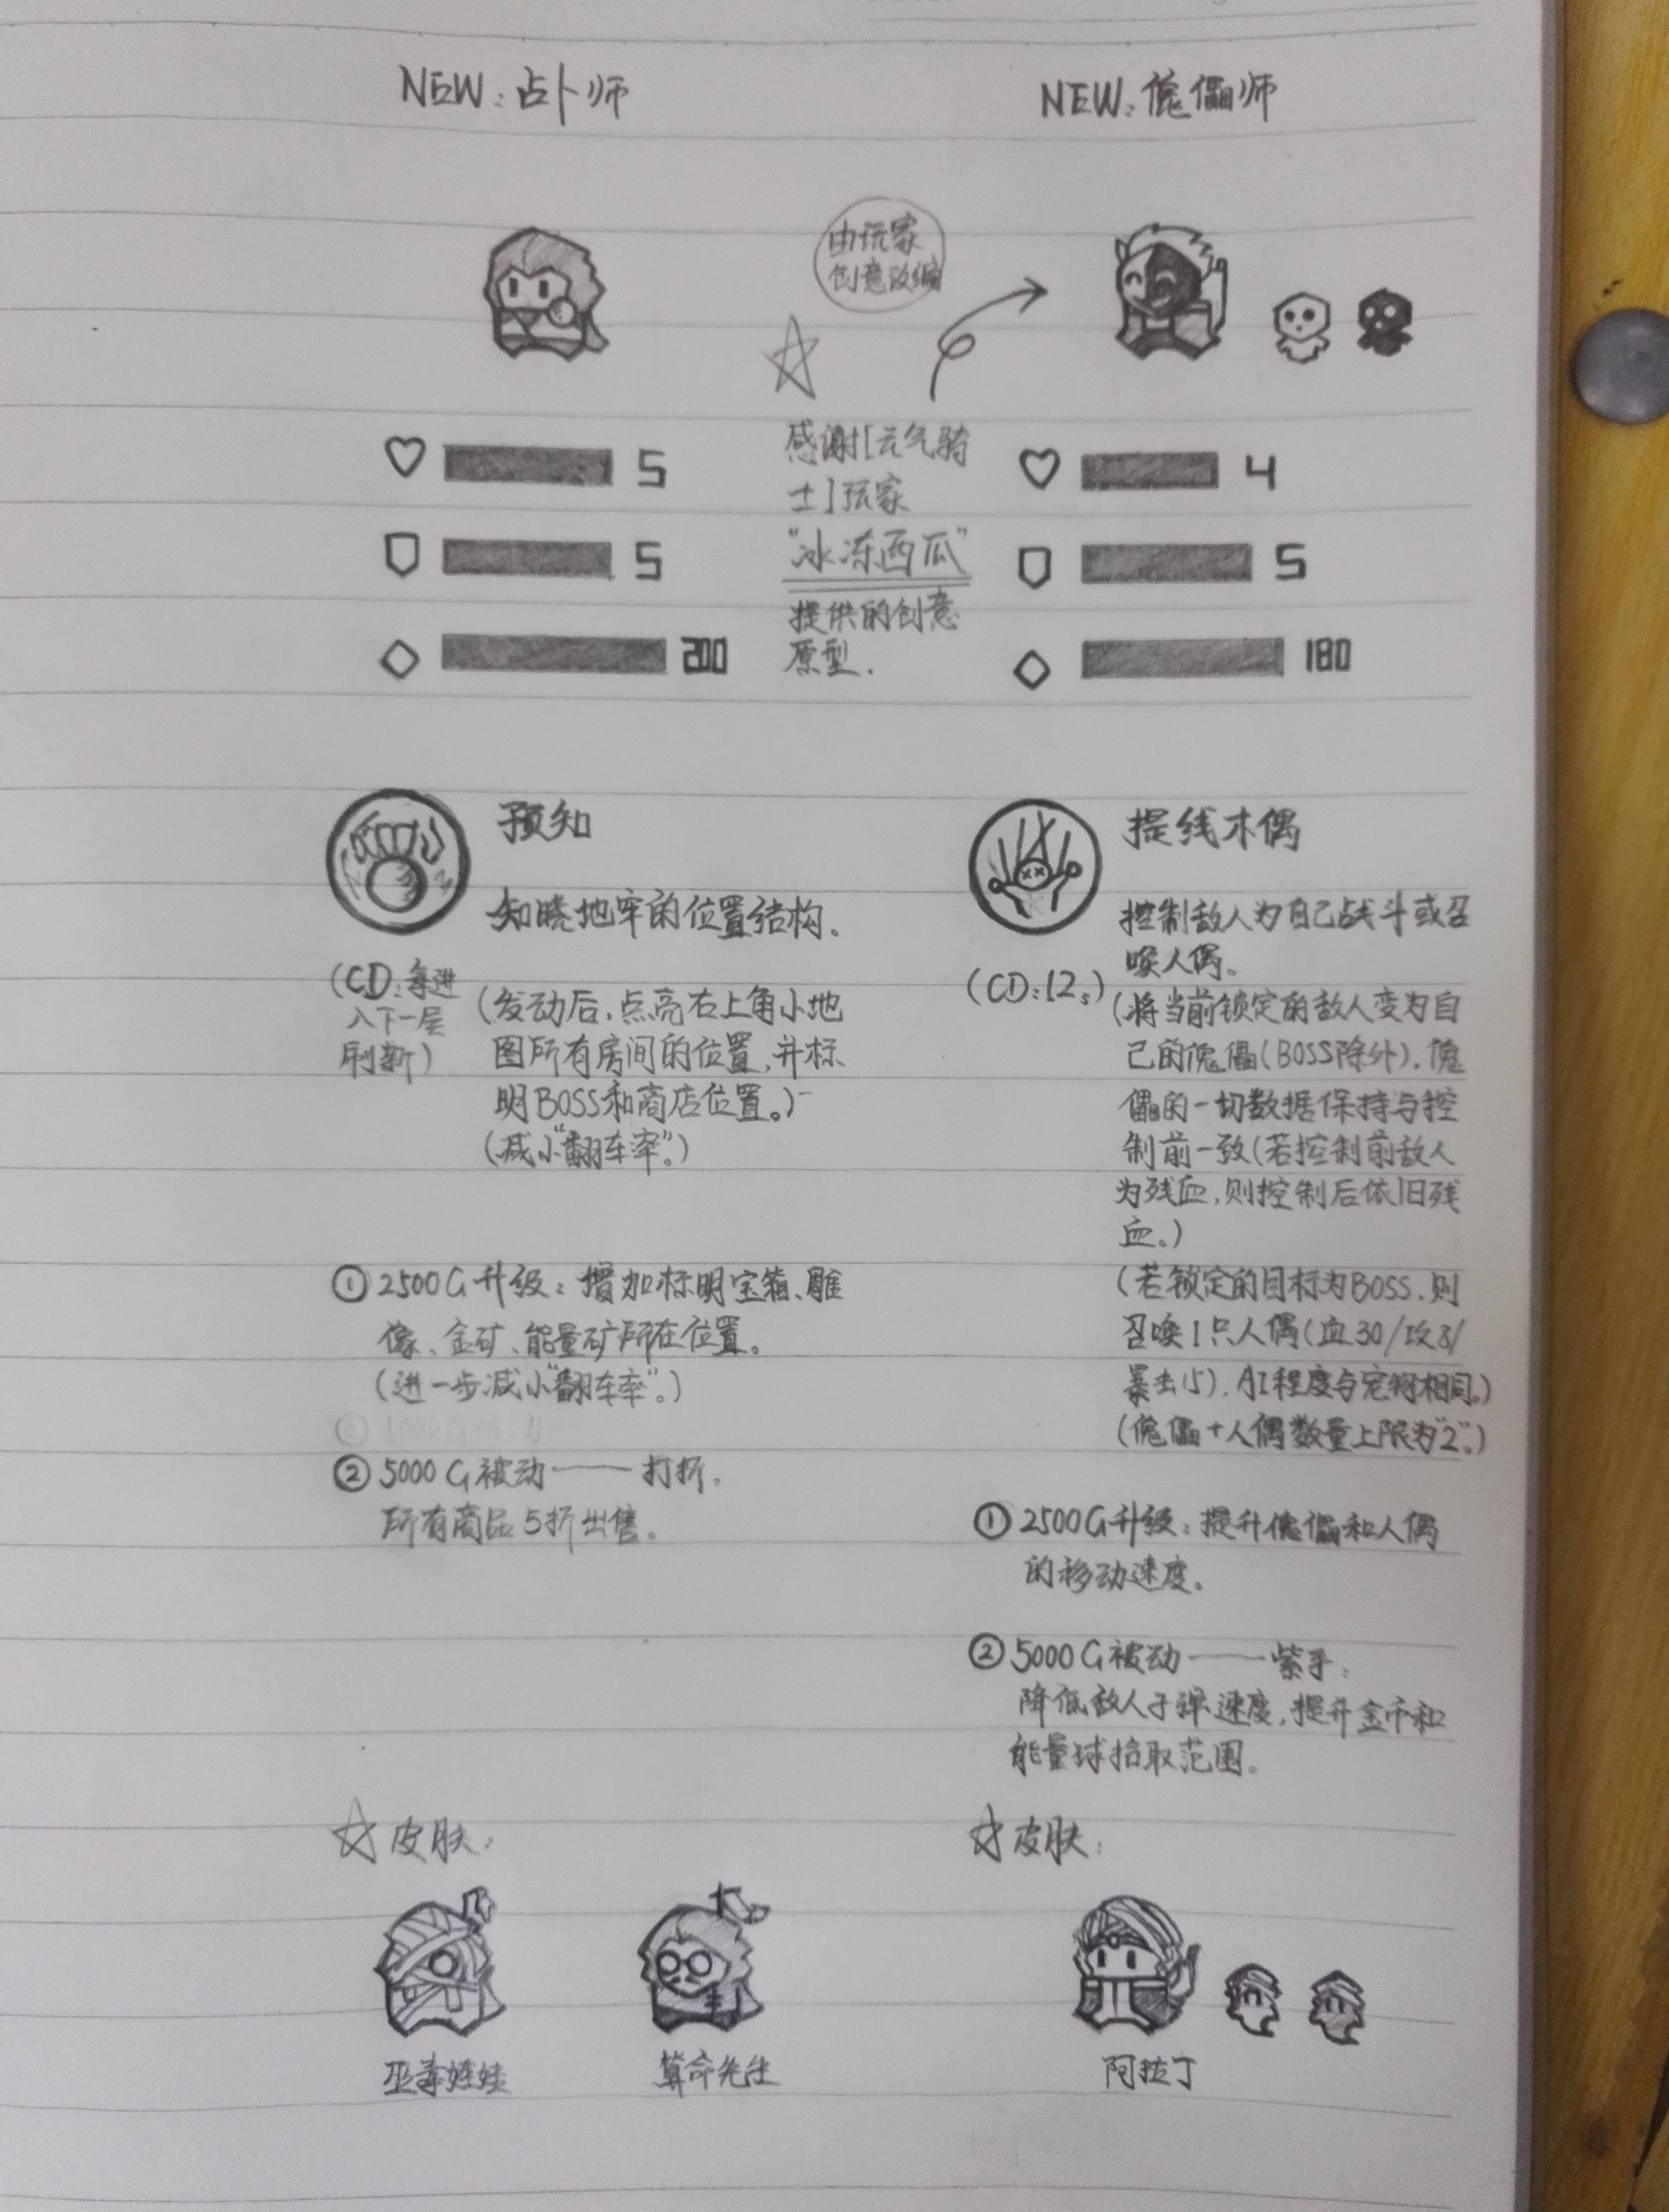 NEW:占卜师
5
5
200
预知
知晓地牢的位置结构。
(CD:每进
入下一层
刷新)
(发动后,点亮右上角小地
图所有房间的位置,并标
明BOSS和商店位置。)
(减小“翻车率”。)
①2500G升级:增加标明宝箱、雕
像、金矿、能量矿所在位置。
(进一步减小“翻车率”。)
②5000G被动——打折。
所有商品5折出售。
☆皮肤:
巫毒娃娃
算命先生
由玩家
创意改编
感谢[元气骑
士]玩家
“冰冻西瓜”
提供的创意
原型.
NEW:傀儡师
4
5
180
提线木偶
控制敌人为自己战斗或召
唤人偶。
(CD:12s)
(将当前锁定的敌人变为自
己的傀儡(BOSS除外),傀
儡的一切数据保持与控
制前一致(若控制前敌人
为残血,则控制后依旧残
血。)
(若锁定的目标为BOSS,则
召唤1只人偶(血30/攻3/
暴击15),AI程度与宠物相同。)
(傀儡+人偶数量上限为“2”。)
①2500G升级:提升傀儡和人偶
的移动速度。
②5000G被动——紫手:
降低敌人子弹速度,提升金币和
能量球拾取范围。
☆皮肤:
阿拉丁